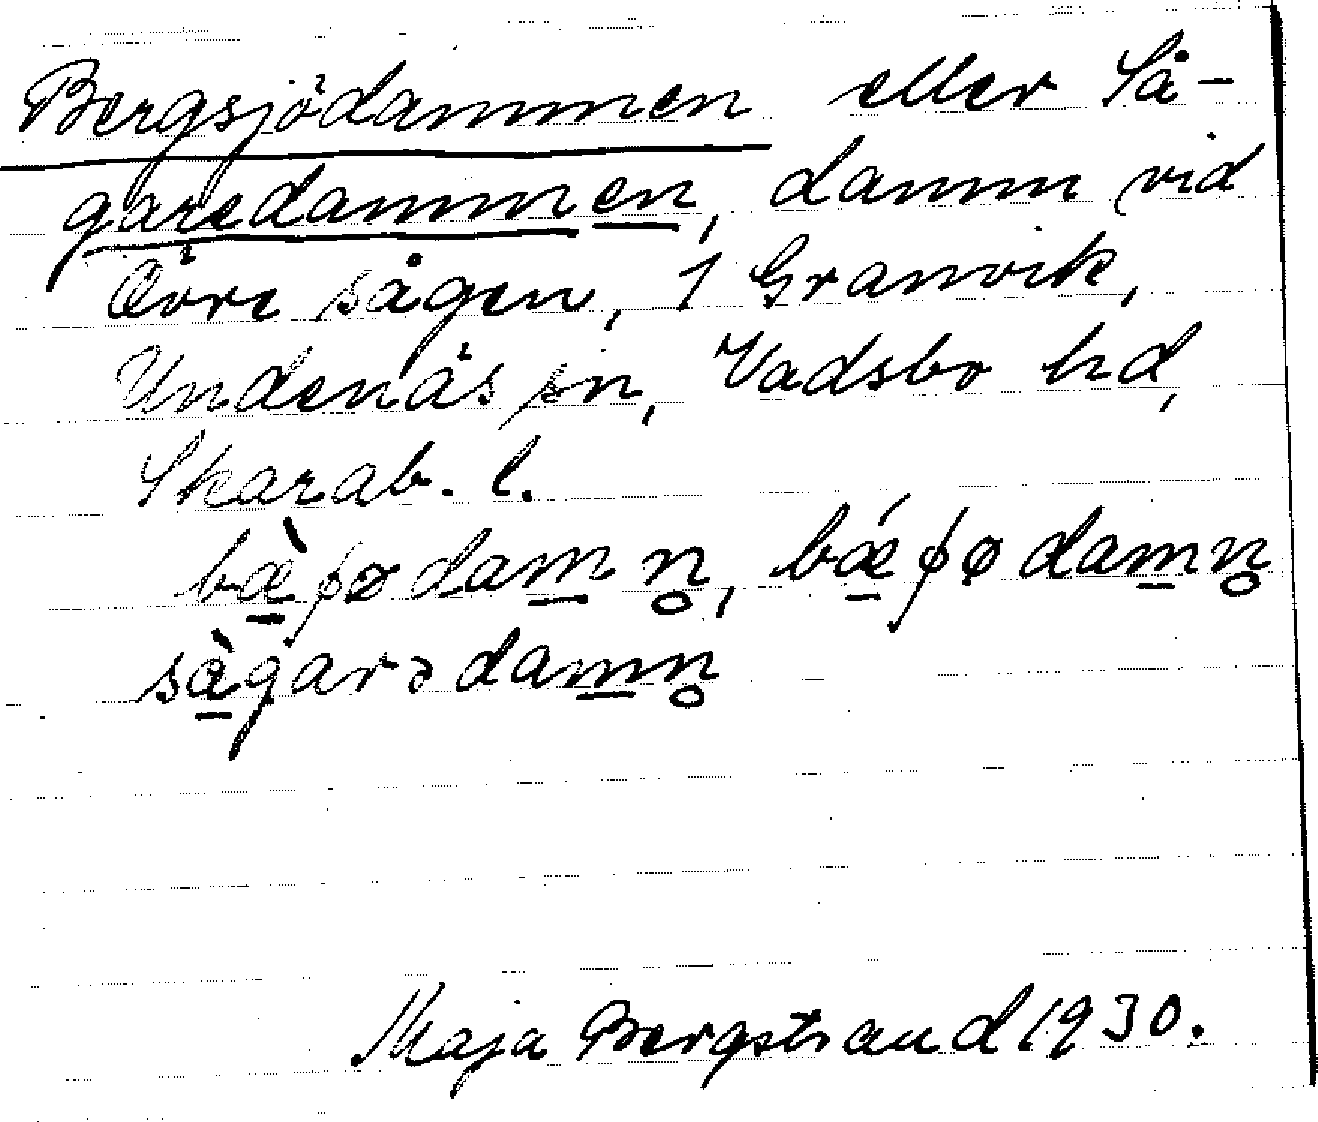 Bergsjödammen eller Så-
garedammen, damm vid
Övre sågen, 1 Granvik,
Undenäs sn, Vadsbo hd,
Skarab. l.
bæ̠̀ʃødam̠n̥, bǽ̠ʃødam̠n̥
sà̠garədam̠n̥
Maja Bergstrand 1930.